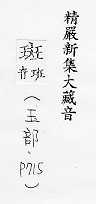 精嚴新集大藏音
音班
(玉部、P715)